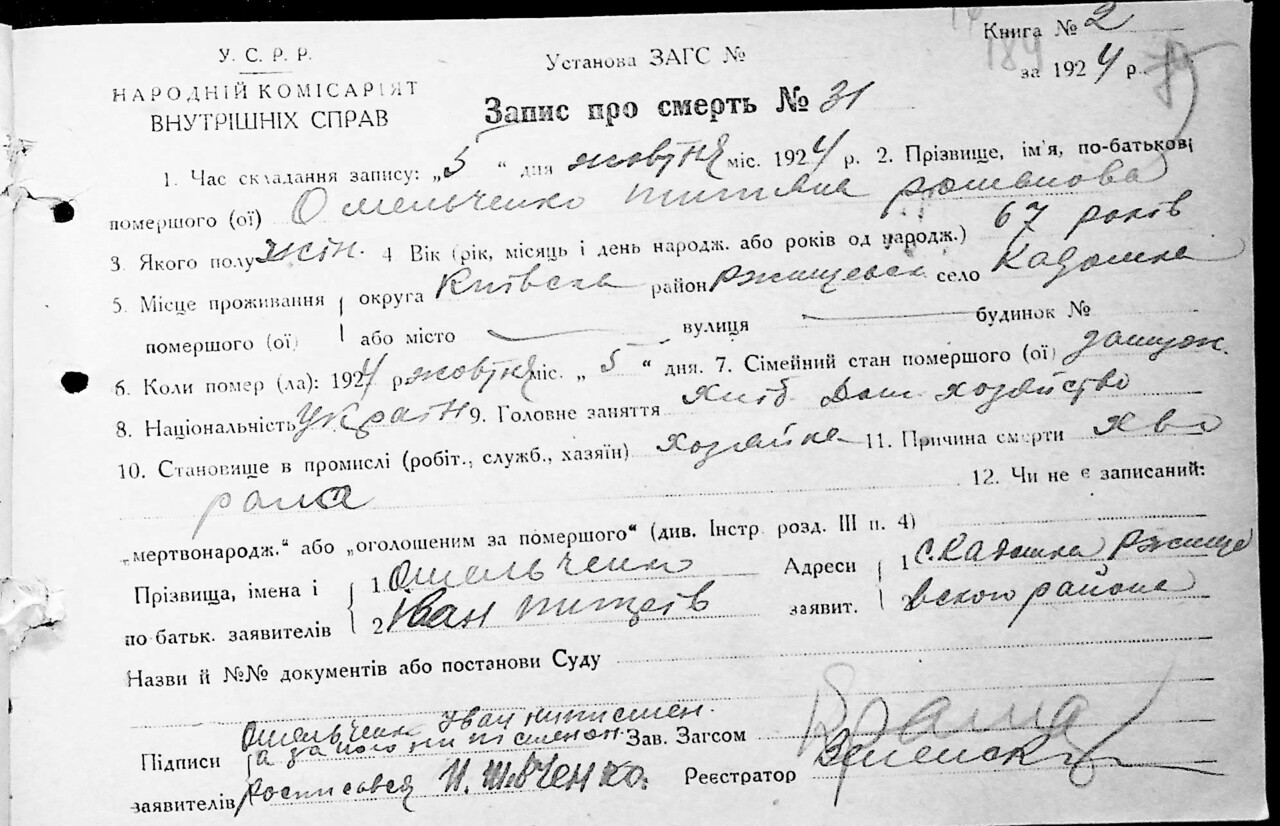 Книга № 2
У. С. Р. Р.
Установа ЗАГС №
184
за 1924 р.
НАРОДНІЙ КОМІСАРІЯТ
ВНУТРІШНІХ СПРАВ
Запис про смерть № 31
1. Час складання запису: „5 “ дня жовтня міс. 1924 р. 2. Прізвище, ім'я, по-батькові
помершого (ої) Омельченко
3. Якого полу жін. 4. Вік (рік, місяць і день народж. або років од народж.) 67 років
5. Місце проживання округа Київська район Ржищевск село Кадомка
помершого (ої) або місто вулиця будинок №
6. Коли помер (ла): 1924 р жовтня міс. „ 5 “ дня. 7. Сімейний стан помершого (ої) замуж.
8. Національність Украін 9. Головне заняття Хліб Дом хозяйство
10. Становище в промислі (робіт., служб., хазяїн) хозяйка 11. Причина смерти хво
рала 12. Чи не є записаний:
„мертвонародж.“ або „оголошеним за помершого“ (див. Інстр. розд. III п. 4)
Прізвища, імена і 1 Омельченко Адреси 1 с. Кадомка Ржище
по батьк. заявителів 2 Іван заявит. 2 вского района
Назви й №№ документів або постанови Суду
Підписи Омельченк Іван
а за його Зав. Загсом
заявителів росписовся И. Шевченко. Реєстратор